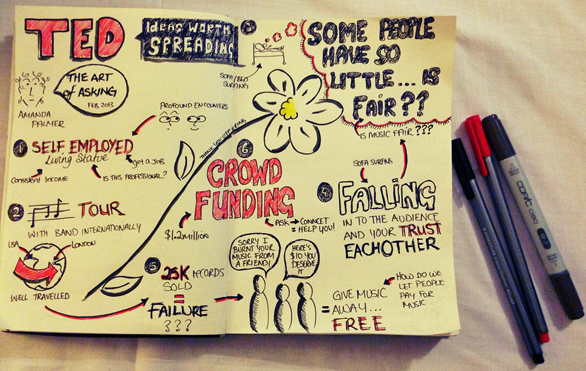 TED
IDEAS WORTH
SPREADING
THE ART
of ASKING
FEB 2013
AMANDA
PALMER
PROFOUND ENCOUNTERS
1
SELF EMPLOYED
Living Statue
Consistent Income
get a Job
IS THIS PROFESSIONAL?
2
TOUR
WITH BAND INTERNATIONALLY
USA
LONDON
WELL TRAVELLED
3
SOFA/BED
SURFING
SOME PEOPLE
HAVE SO
LITTLE... IS
FAIR??
IS MUSIC FAIR???
SOFA SURFING
FALLING
IN TO THE AUDIENCE
AND YOUR TRUST
EACHOTHER
5
25K RECORDS
SOLD
=
FAILURE
???
6
CROWD
FUNDING
$1.2 million
ASK → CONNECT
= HELP YOU!
SORRY I
BURNT YOUR
MUSIC FROM
A FRIEND!
HERE'S
$10 YOU
DESERVE
IT
= GIVE MUSIC
AWAY...
FREE
HOW DO WE
LET PEOPLE
PAY FOR
MUSIC
copic ciao